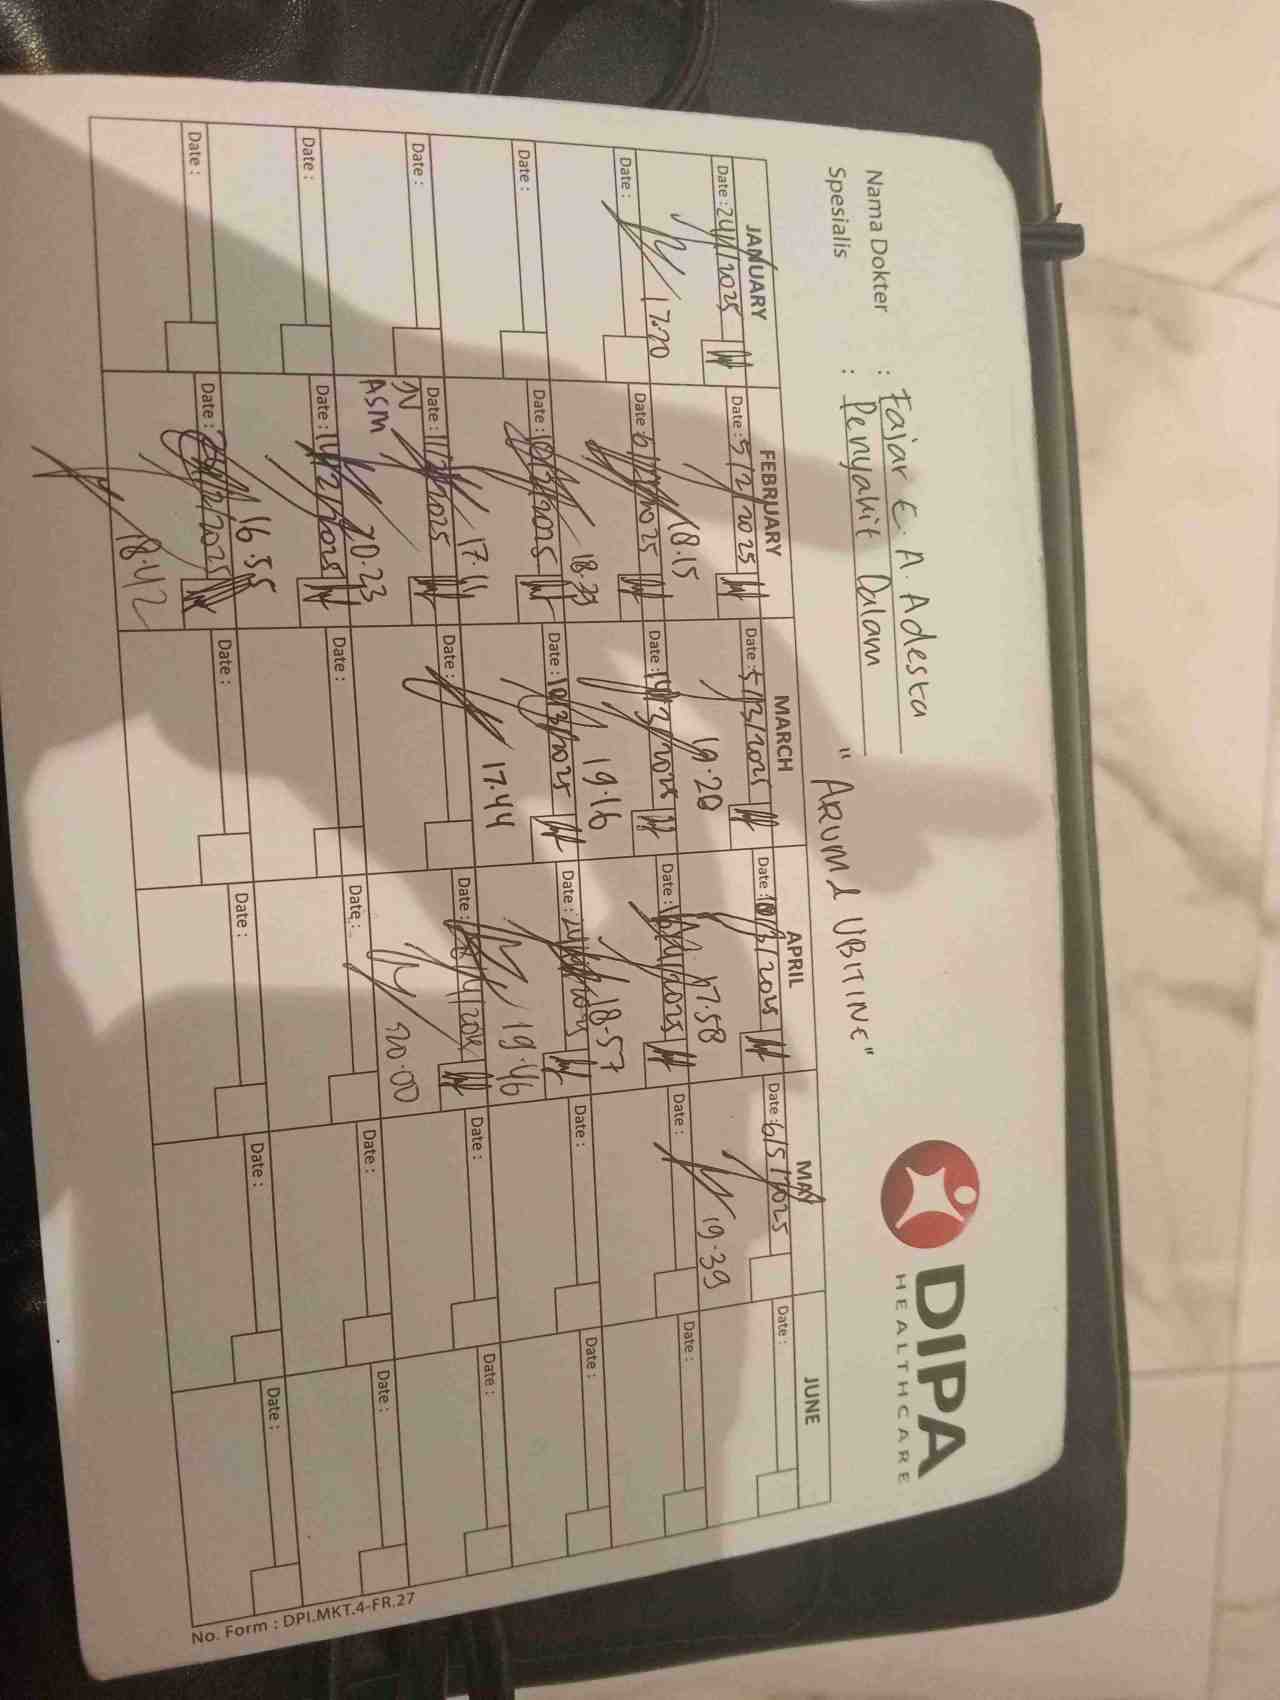 Nama Dokter : Fajar E. A. Adesta
Spesialis : Penyakit Dalam
" ARUM & UBITINE"
DIPA
HEALTHCARE
JANUARY FEBRUARY MARCH APRIL MAY JUNE
Date : 24/1/2025 Date : 5/2/2025 Date : 5/3/2025 Date : 10/3/2025 Date : 6/5/2025 Date :
17.20 18.15 19.20 17.58 19.39
Date : Date : 6/2/2025 Date : Date : Date : Date :
18.39 19.16 18.57
Date : Date : Date : 10/3/2025 Date : Date : Date :
17.11 17.44 19.46
Date : Date : 11/2/2025 Date : Date : Date : Date :
ASM 20.23 20.00
Date : Date : 14/2/2025 Date : Date : Date : Date :
16.55
Date : Date : Date : Date : Date : Date :
18.42
No. Form : DPI.MKT.4-FR.27